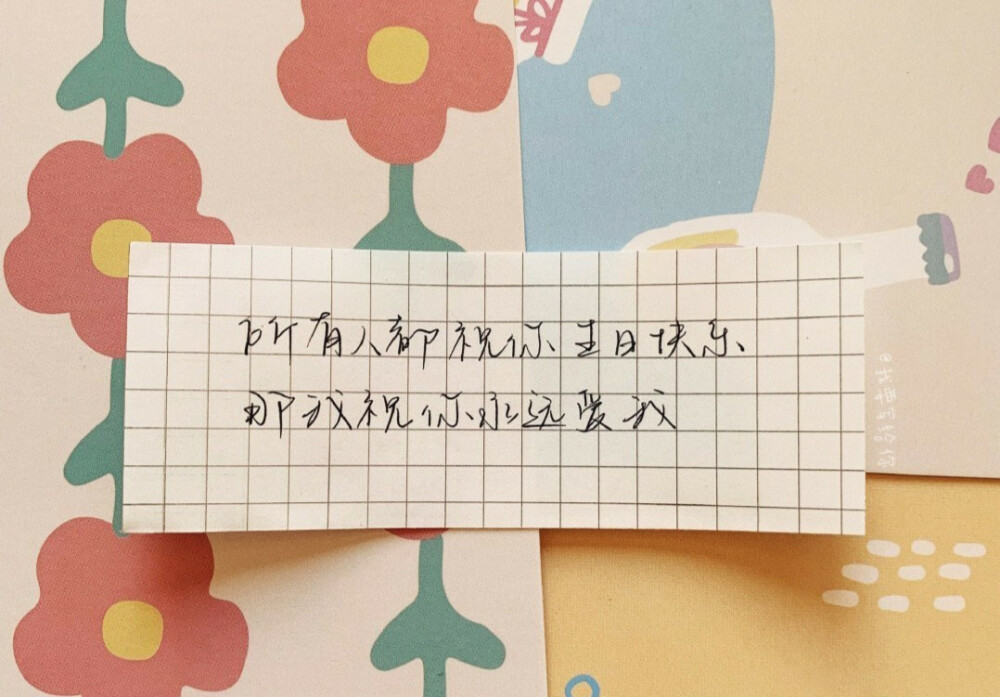 所有人都祝你生日快乐
那我祝你永远爱我
@我要写给你